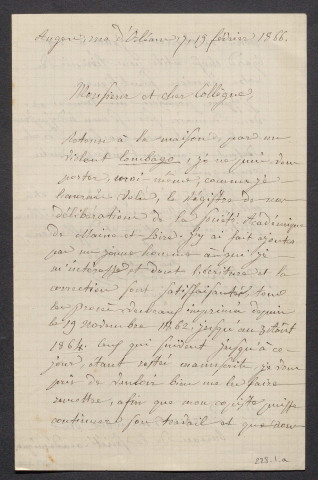 Angers, rue d'Orléans, 7, 19 février 1866.
Monsieur et cher Collègue,
Retenu à la maison, par un
violent lombago, je ne puis vous
porter, moi même, comme je
l'aurais voulu, le Registre de nos
délibérations de la Société Académique
de Maine et Loire. J'y ai fait ajouter
par un jeune homme auquel je
m'intéresse et dont l'écriture et la
correction sont satisfaisantes, tous
les procès verbaux imprimés depuis
le 19 novembre 1862 jusqu'au 3 août
1864. Ceux qui suivent jusqu'à ce
jour, étant restés manuscrits, je vous
prie de vouloir bien me les faire
remettre, afin que mon copiste puisse
continuer son travail et que nous
223-1.a